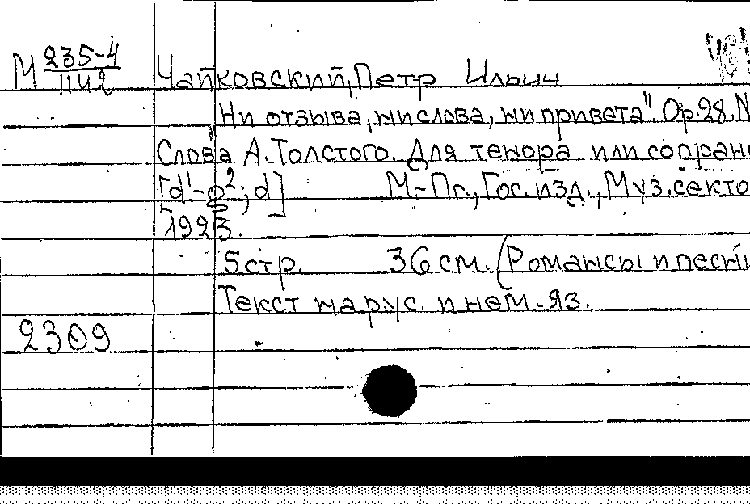 М 235-4/1142 Чайковский, Петр Ильич
"Ни отзыва, ни слова, ни привета". Ор. 28, N
Слова А. Толстого. Для тенора или сопран
[d¹-g²; d] М.-Пг., Гос. изд., Муз. секто
1923.
5 стр. 36 см. (Романсы и песни
Текст на рус. и нем. яз.
2309